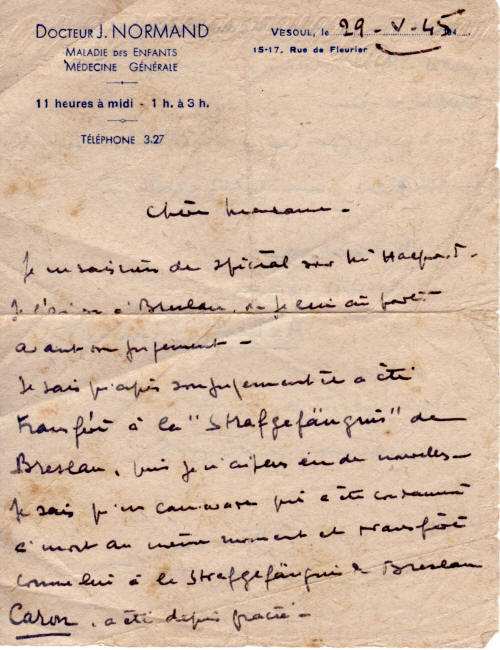 DOCTEUR J. NORMAND
MALADIE DES ENFANTS
MÉDECINE GÉNÉRALE
11 heures à midi - 1 h. à 3 h.
TÉLÉPHONE 3.27
VESOUL, le 29-V-45 194
15-17, Rue de Fleurier
Chère Madame -
Je ne sais rien de spécial sur Mr
Je l'ai vu à Breslau, où je lui ai parlé
avant son jugement -
Je sais qu'après son jugement il a été
transféré à la "Strafgefängnis" de
Breslau, puis je n'ai plus eu de nouvelles -
Je sais qu'un camarade qui a été condamné
à mort au même moment et transféré
comme lui à la Strafgefängnis de Breslau
Caron, a été depuis gracié -